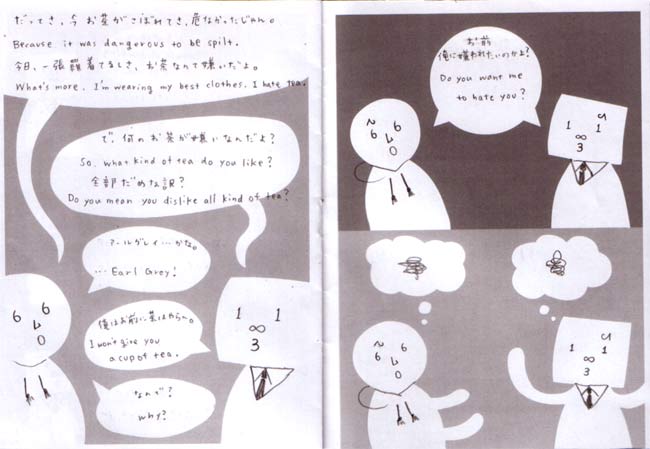 だってさ、今お茶がこぼれてさ、危なかったじゃん。
Because it was dangerous to be spilt.
今日、一張羅着てるしさ、お茶なんて嫌いだよ。
What's more, I'm wearing my best clothes. I hate tea.
で、何のお茶が嫌いなんだよ?
So, what kind of tea do you like?
全部だめな訳?
Do you mean you dislike all kind of tea?
アールグレイ…かな。
…Earl Grey!
俺はお前に茶はやらへ。
I won't give you
a cup of tea.
なんで?
Why?
6 9
0
1 1
∞
3
お前
俺に嫌われたいのかよ?
Do you want me
to hate you?
6
0
1 1
∞
3
6
0
1 1
∞
3